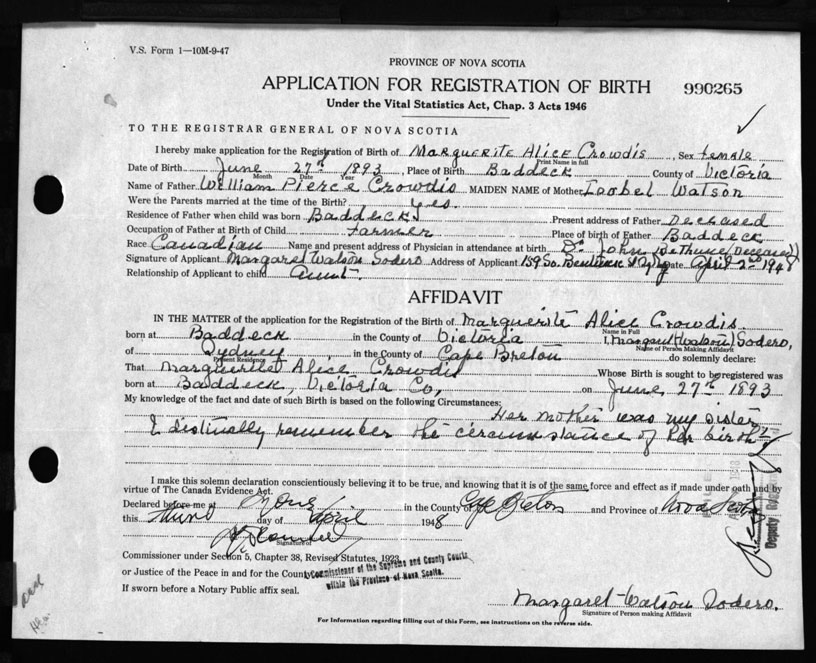 V.S. Form 1—10M-9-47
PROVINCE OF NOVA SCOTIA
APPLICATION FOR REGISTRATION OF BIRTH 990265
Under the Vital Statistics Act, Chap. 3 Acts 1946
TO THE REGISTRAR GENERAL OF NOVA SCOTIA
I hereby make application for the Registration of Birth of Marguerite Alice Crowdis, Sex female
Print Name in full
Date of Birth June 27th 1893, Place of Birth Baddeck County of Victoria
Month Date Year
Name of Father William Pierce Crowdis MAIDEN NAME of Mother Isobel Watson
Were the Parents married at the time of Birth? yes.
Residence of Father when child was born Baddeck Present address of Father Deceased
Occupation of Father at Birth of Child Farmer Place of birth of Father Baddeck
Race Canadian Name and present address of Physician in attendance at birth Dr. John Bethune (Deceased)
Signature of Applicant Margaret Watson Sodero Address of Applicant 159 So. Bentinck St Date April 2nd 1948
Relationship of Applicant to child Aunt.
AFFIDAVIT
IN THE MATTER of the application for the Registration of the Birth of Marguerite Alice Crowdis.
Name in Full
born at Baddeck in the County of Victoria I, Margaret (Watson) Sodero,
Name of Person Making Affidavit
of Sydney in the County of Cape Breton do solemnly declare:
Present Residence
That Marguerite Alice Crowdis Whose Birth is sought to be registered was
born at Baddeck, Victoria Co, on June 27th 1893
My knowledge of the fact and date of such Birth is based on the following Circumstances:
Her mother was my sister
I distinctly remember the circumstance of her birth
I make this solemn declaration conscientiously believing it to be true, and knowing that it is of the same force and effect as if made under oath and by
virtue of The Canada Evidence Act.
Declared before me at in the County of Cape Breton and Province of Nova Scotia
this day of April 1948
Signature of
Commissioner under Section 5, Chapter 38, Revised Statutes, 1923
or Justice of the Peace in and for the County
Commissioner of the Supreme and County Courts
within the Province of Nova Scotia.
If sworn before a Notary Public affix seal.
Margaret Watson Sodero.
Signature of Person making Affidavit
For Information regarding filling out of this Form, see instructions on the reverse side.
Deputy